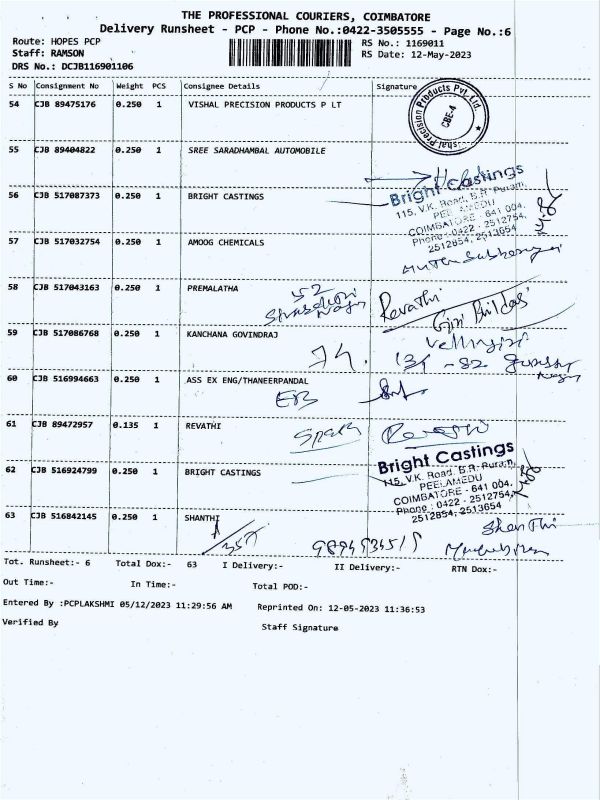 THE PROFESSIONAL COURIERS, COIMBATORE
Delivery Runsheet - PCP - Phone No.:0422-3505555 - Page No.:6
Route: HOPES PCP RS No.: 1169011
Staff: RAMSON RS Date: 12-May-2023
DRS No.: DCJB116901106
S No Consignment No Weight PCS Consignee Details Signature
54 CJB 89475176 0.250 1 VISHAL PRECISION PRODUCTS P LT
Vishal Precision Products Pvt. Ltd. CBE-4
55 CJB 89404822 0.250 1 SREE SARADHAMBAL AUTOMOBILE
56 CJB 517087373 0.250 1 BRIGHT CASTINGS
Bright Castings
115, V.K. Road, B.R. Puram,
PEELAMEDU
COIMBATORE - 641 004.
Phone : 0422 - 2512754,
2512854, 2513654
57 CJB 517032754 0.250 1 AMOOG CHEMICALS
58 CJB 517043163 0.250 1 PREMALATHA
52
Revathi
59 CJB 517086768 0.250 1 KANCHANA GOVINDRAJ
74.
60 CJB 516994663 0.250 1 ASS EX ENG/THANEERPANDAL
EB
61 CJB 89472957 0.135 1 REVATHI
Revathi
62 CJB 516924799 0.250 1 BRIGHT CASTINGS
Bright Castings
115, V.K. Road, B.R. Puram,
PEELAMEDU
COIMBATORE - 641 004.
Phone : 0422 - 2512754,
2512854, 2513654
63 CJB 516842145 0.250 1 SHANTHI
Shanthi
Tot. Runsheet:- 6 Total Dox:- 63 I Delivery:- II Delivery:- RTN Dox:-
Out Time:- In Time:- Total POD:-
Entered By :PCPLAKSHMI 05/12/2023 11:29:56 AM Reprinted On: 12-05-2023 11:36:53
Verified By Staff Signature